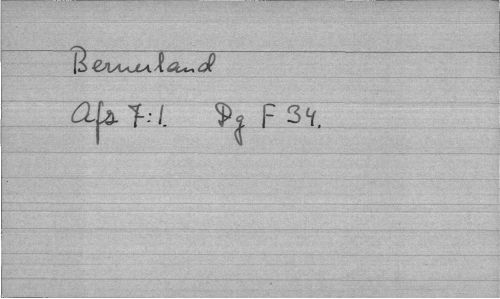 Bernerland
Afs 7:1. Dg F 34.